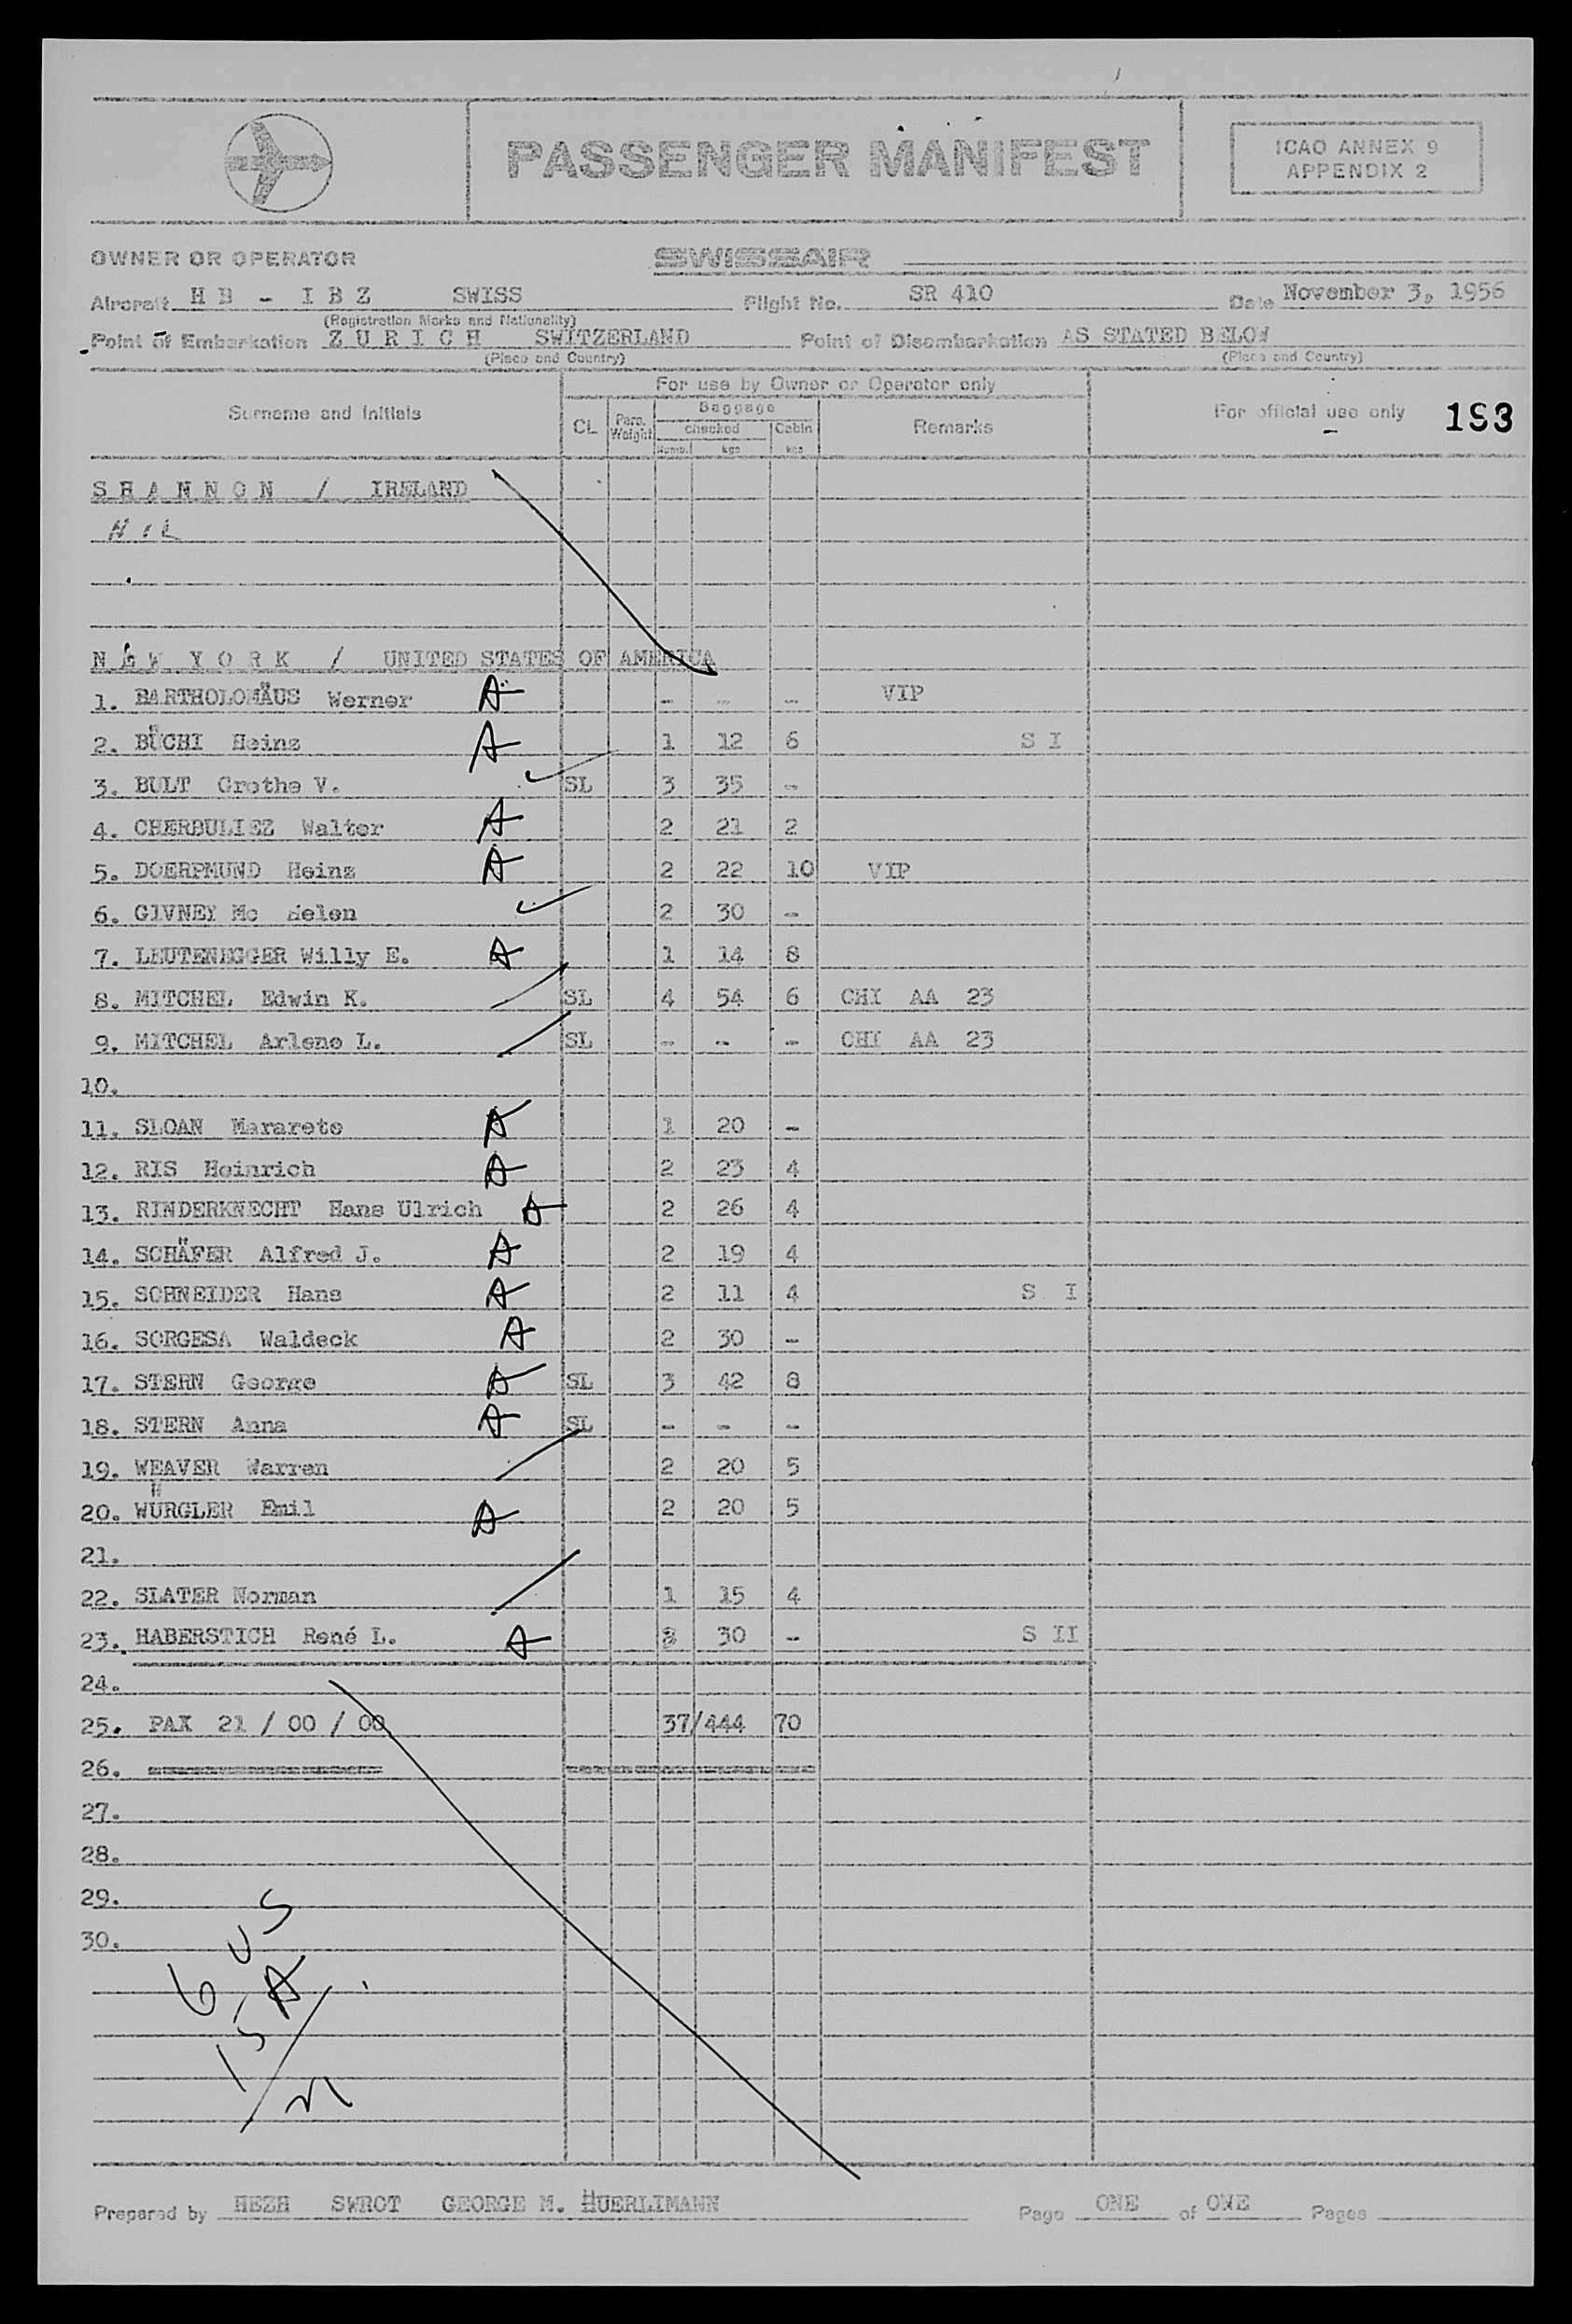 PASSENGER MANIFEST
ICAO ANNEX 9
APPENDIX 2
OWNER OR OPERATOR SWISSAIR
Aircraft H B - I B Z SWISS Flight No. SR 410 Date November 3, 1956
(Registration Marks and Nationality)
Point of Embarkation Z U R I C H SWITZERLAND Point of Disembarkation AS STATED BELOW
(Place and Country) (Place and Country)
For use by Owner or Operator only
Surname and Initials CL Pass. Weight Baggage Remarks For official use only 193
checked Cabin
Numb. kgs kgs
S H A N N O N / IRELAND
NIL
N E W Y O R K / UNITED STATES OF AMERICA
1. BARTHOLOMÄUS Werner A - - - VIP
2. BÜCHI Heinz A 1 12 6 S I
3. BULT Grethe V. SL 3 35 -
4. CHERBULIEZ Walter A 2 21 2
5. DOERPMUND Heinz A 2 22 10 VIP
6. GIVNEY Mc Helen 2 30 -
7. LEUTENEGGER Willy E. A 1 14 8
8. MITCHEL Edwin K. SL 4 54 6 CHI AA 23
9. MITCHEL Arlene L. SL - - - CHI AA 23
10.
11. SLOAN Mararete A 1 20 -
12. RIS Heinrich A 2 23 4
13. RINDERKNECHT Hans Ulrich A 2 26 4
14. SCHÄFER Alfred J. A 2 19 4
15. SCHNEIDER Hans A 2 11 4 S I
16. SORGESA Waldeck A 2 30 -
17. STERN George A SL 3 42 8
18. STERN Anna A SL - - -
19. WEAVER Warren 2 20 5
20. WÜRGLER Emil A 2 20 5
21.
22. SLATER Norman 1 15 4
23. HABERSTICH René L. A 30 - S II
24.
25. PAX 21 / 00 / 00 37/444 70
26.
27.
28.
29.
30.
6 US
15 A
21
Prepared by HEZH SWROT GEORGE M. HUERLIMANN Page ONE of ONE Pages